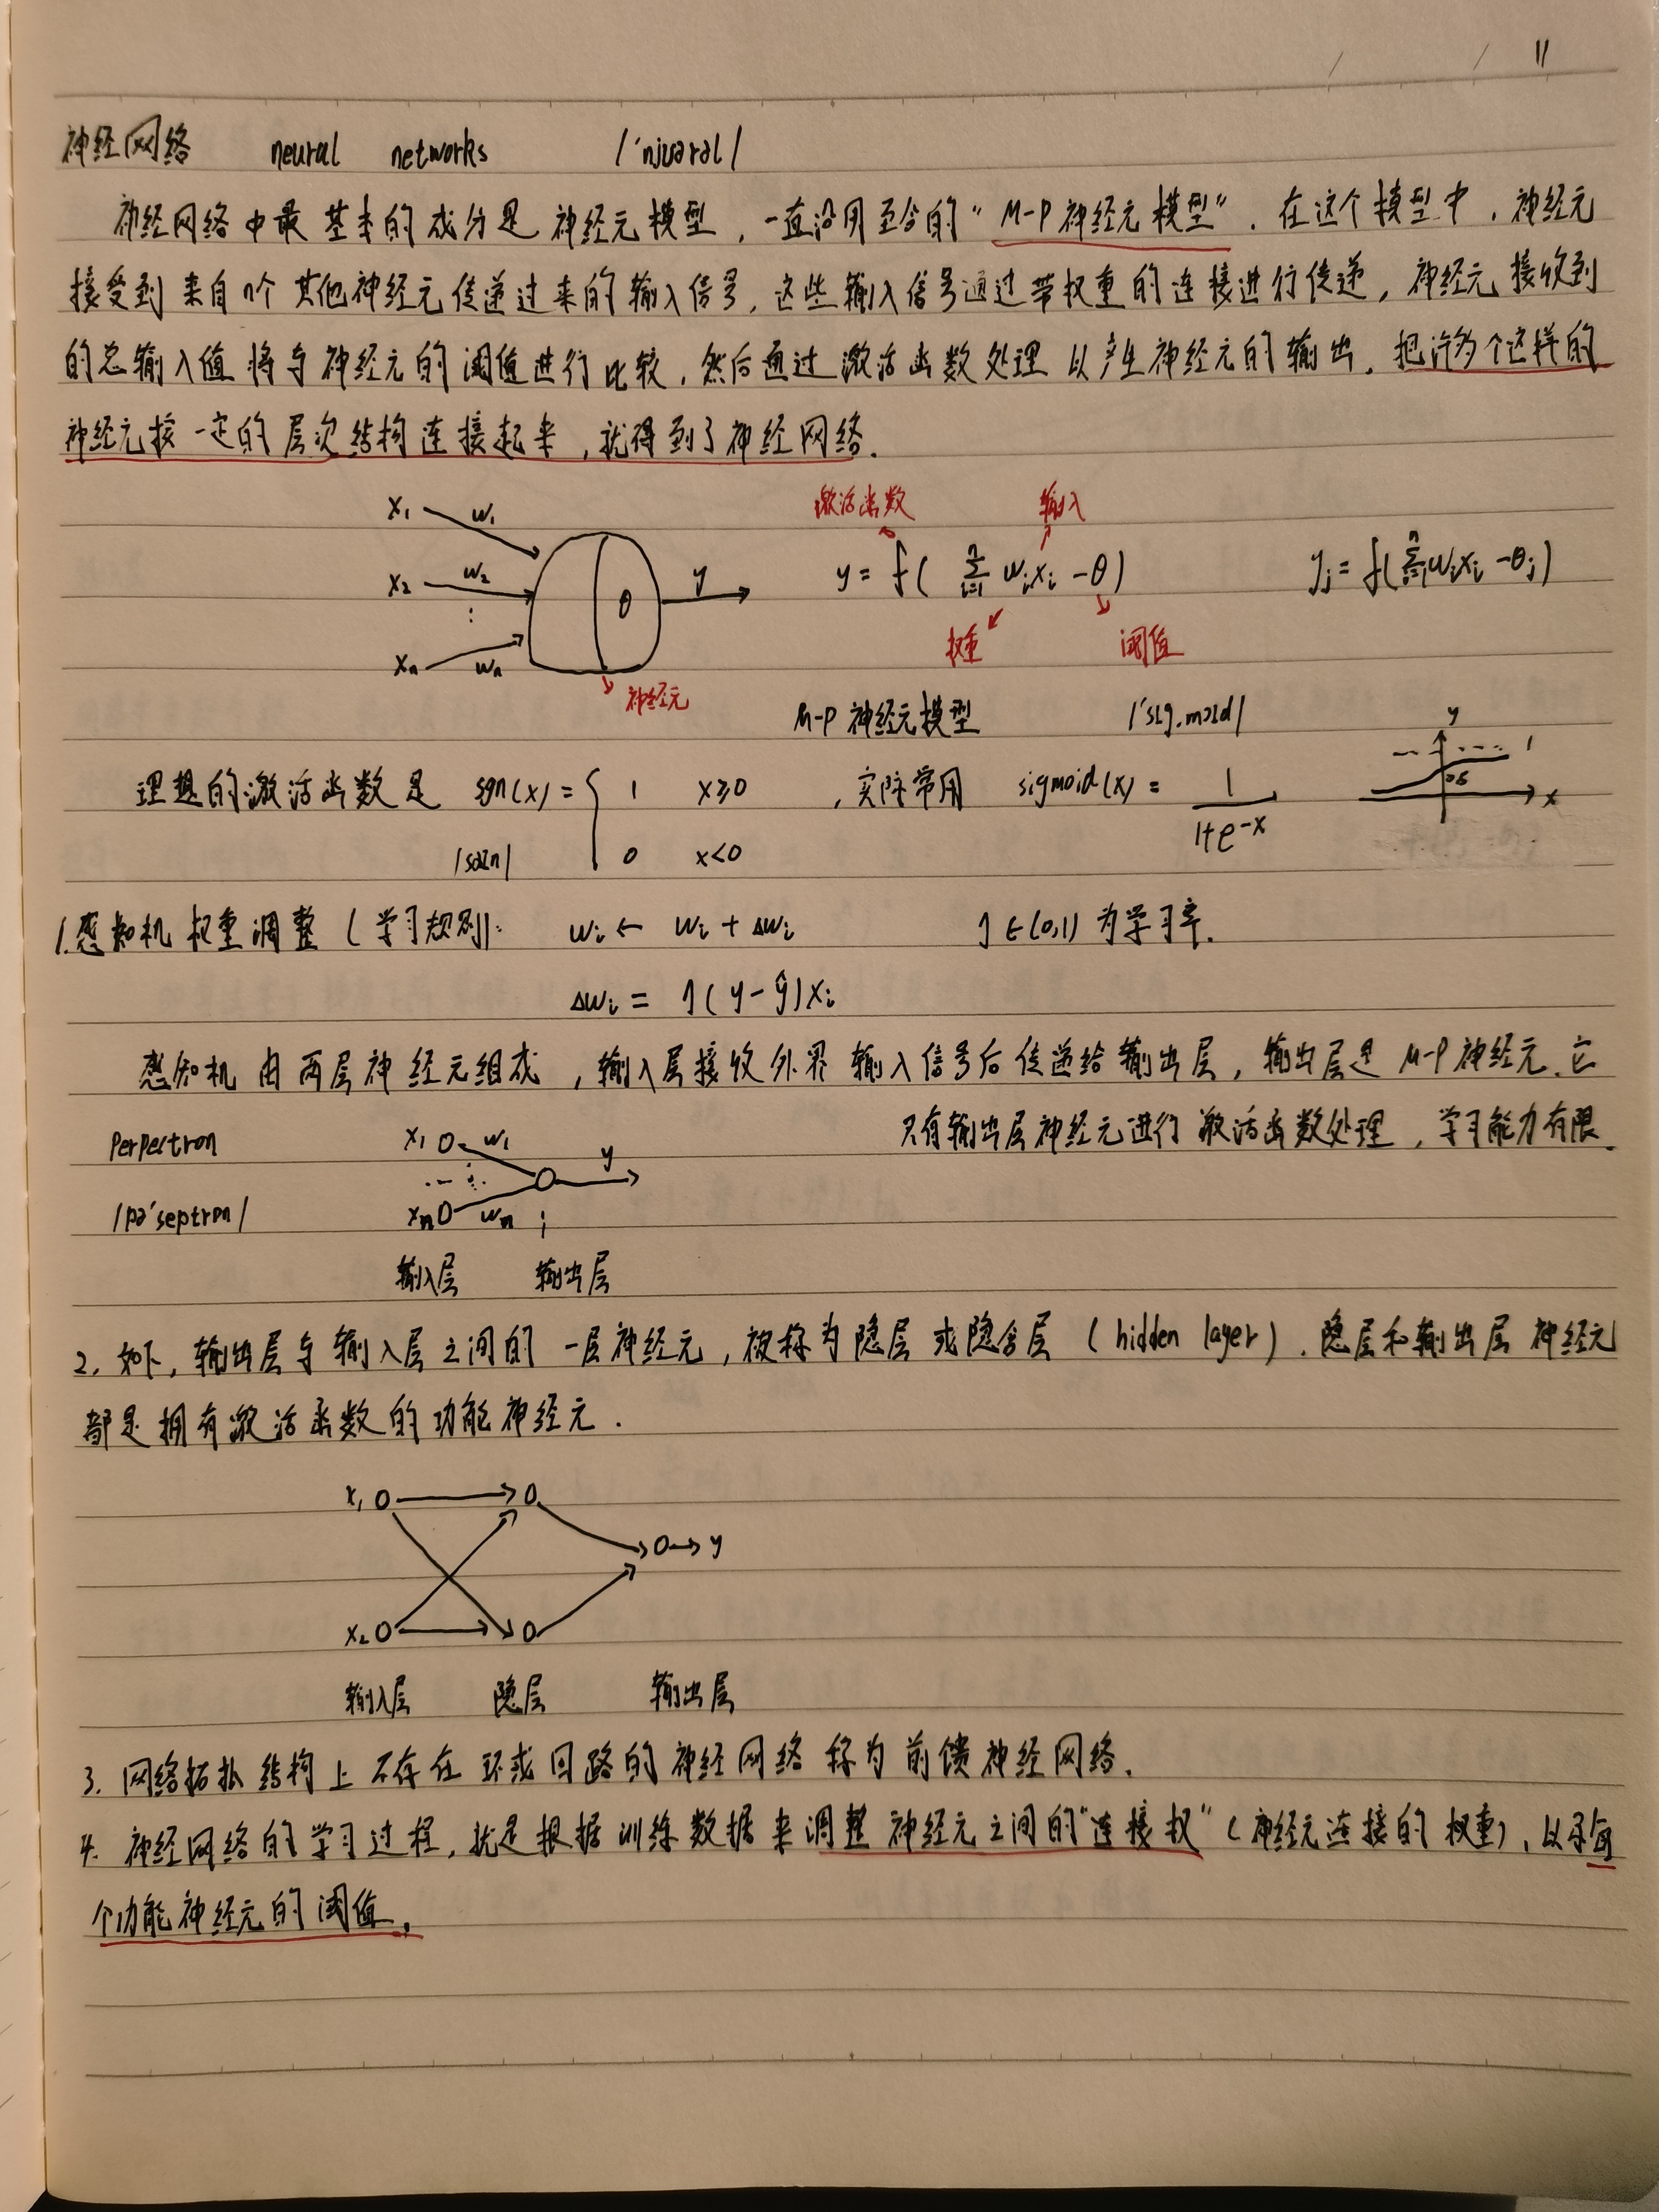 11
神经网络 neural networks /ˈnjuərəl/
神经网络中最基本的成分是神经元模型，一直沿用至今的“M-P神经元模型”．在这个模型中，神经元
接受到来自n个其他神经元传递过来的输入信号，这些输入信号通过带权重的连接进行传递，神经元接收到
的总输入值将与神经元的阈值进行比较，然后通过激活函数处理以产生神经元的输出．把许多个这样的
神经元按一定的层次结构连接起来，就得到了神经网络．
激活函数 输入
x₁ w₁
x₂ w₂ θ y
⋮
xₙ wₙ
y = f( Σᵢ₌₁ⁿ wᵢxᵢ - θ) yⱼ = f(Σᵢ₌₁ⁿ wᵢxᵢ - θⱼ)
权重 阈值
神经元
M-P 神经元模型 /ˈsɪg.mɔɪd/
理想的激活函数是 sgn(x) = { 1 x≥0 ，实际常用 sigmoid(x) = 1/(1+e^-x) y 1 0.5 x
0 x<0
1.感知机权重调整(学习规则): wᵢ ← wᵢ + Δwᵢ η∈(0,1) 为学习率．
Δwᵢ = η(y-ŷ)xᵢ
感知机由两层神经元组成，输入层接收外界输入信号后传递给输出层，输出层是M-P神经元．它
只有输出层神经元进行激活函数处理，学习能力有限．
perpectron x₁ w₁ y
/pə'septrɒn/ xₙ wₙ
输入层 输出层
2. 如下，输出层与输入层之间的一层神经元，被称为隐层或隐含层(hidden layer)．隐层和输出层神经元
都是拥有激活函数的功能神经元．
x₁ y
x₂
输入层 隐层 输出层
3. 网络拓扑结构上不存在环或回路的神经网络称为前馈神经网络．
4. 神经网络的学习过程，就是根据训练数据来调整神经元之间的“连接权”(神经元连接的权重)，以及每
个功能神经元的阈值．